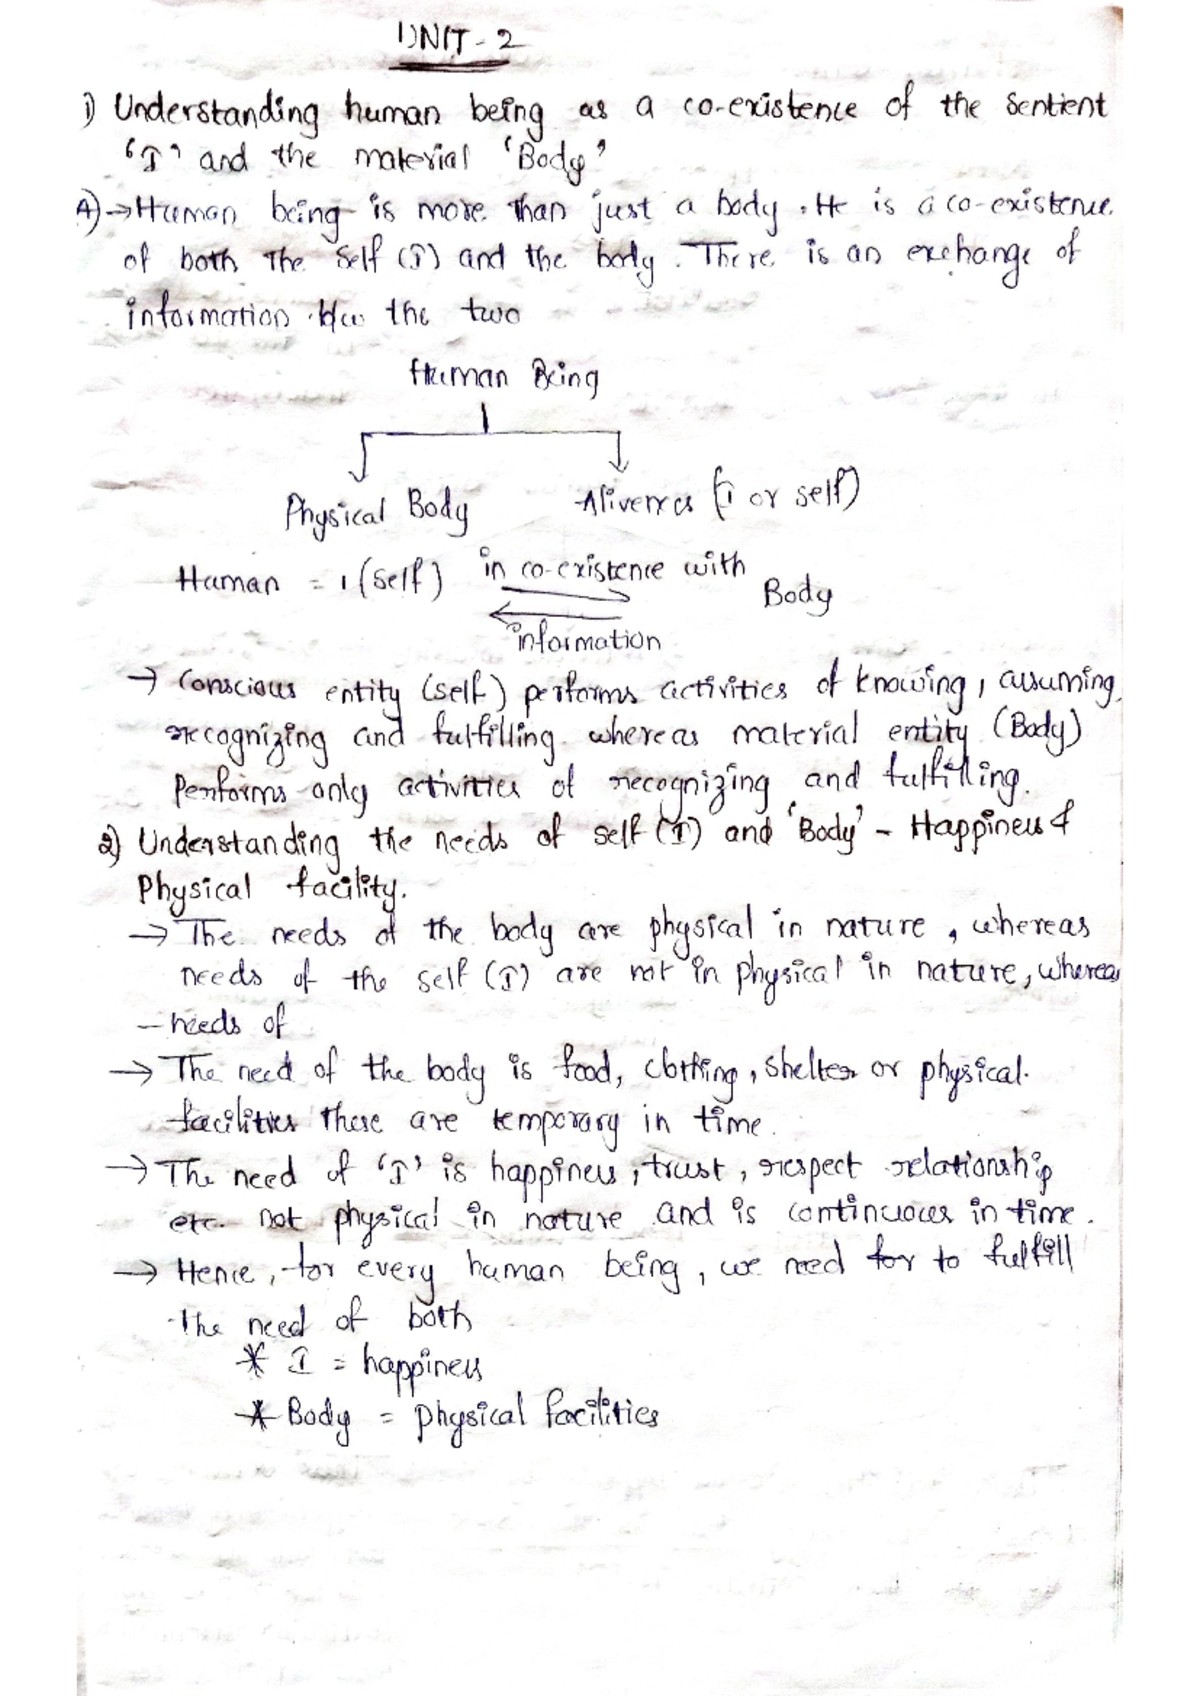 UNIT-2
1) Understanding human being as a co-existence of the Sentient
'I' and the material 'Body'
A) → Human being is more than just a body. He is a co-existence
of both the Self (I) and the body. There is an exchange of
information b/w the two
Human Being
Physical Body Aliveness (I or self)
Human = I (self) in co-existence with Body
information
→ Conscious entity (self) performs activities of knowing, assuming,
recognizing and fulfilling whereas material entity (Body)
Performs only activities of recognizing and fulfilling.
2) Understanding the needs of self (I) and 'Body' - Happiness &
Physical facility.
→ The needs of the body are physical in nature, whereas
needs of the self (I) are not in physical in nature, whereas
- needs of
→ The need of the body is food, clothing, shelter or physical.
facilities these are temporary in time.
→ The need of 'I' is happiness, trust, respect relationship
etc. not physical in nature and is continuous in time.
→ Hence, for every human being, we need for to fulfill
the need of both
* I = happiness
* Body = physical facilities